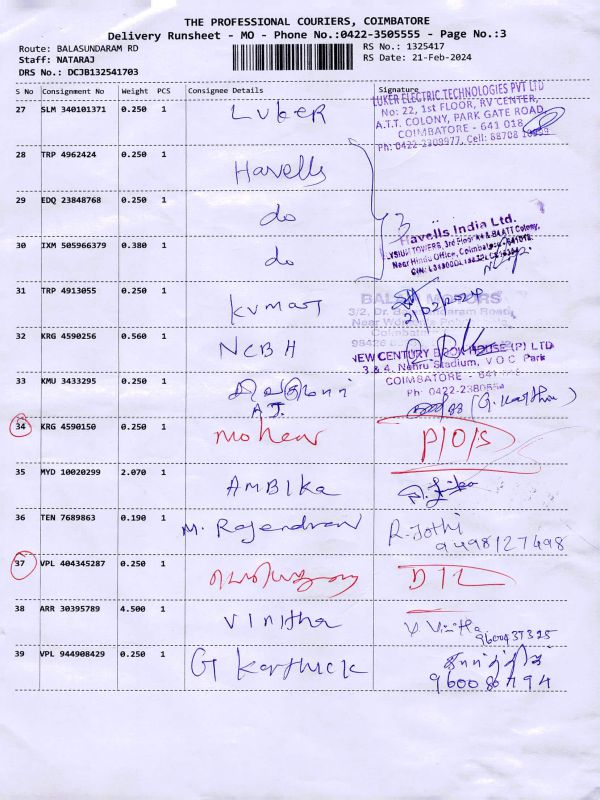 THE PROFESSIONAL COURIERS, COIMBATORE
Delivery Runsheet - MO - Phone No.:0422-3505555 - Page No.:3
Route: BALASUNDARAM RD RS No.: 1325417
Staff: NATARAJ RS Date: 21-Feb-2024
DRS No.: DCJB132541703
S No Consignment No Weight PCS Consignee Details Signature
27 SLM 340101371 0.250 1 Luker
LUKER ELECTRIC TECHNOLOGIES PVT LTD
No: 22, 1st FLOOR, RV CENTER,
A.T.T. COLONY, PARK GATE ROAD
COIMBATORE - 641 018
Ph: 0422-2309977, Cell: 88708
28 TRP 4962424 0.250 1 Havells
29 EDQ 23848768 0.250 1 do
30 IXM 505966379 0.380 1 do
3
Havells India Ltd.
Near Hindu Office, Coimbatore - 641018
31 TRP 4913055 0.250 1 kumar
21/02/2024
32 KRG 4590256 0.560 1 NCBH
NEW CENTURY BOOK HOUSE (P) LTD
3 & 4, Nehru Stadium, V O C Park
COIMBATORE - 641
Ph: 0422-2380554
33 KMU 3433295 0.250 1
A.J.
(G. Karthi)
34 KRG 4590150 0.250 1 Mohan P/O/S
35 MYD 10020299 2.070 1 AMBIka
36 TEN 7689863 0.190 1 M. Rajendran R. Jothi
9498127498
37 VPL 404345287 0.250 1 D/L
38 ARR 30395789 4.500 1 Vinitha V. Vinitha
9600437325
39 VPL 944908429 0.250 1 G Karthick